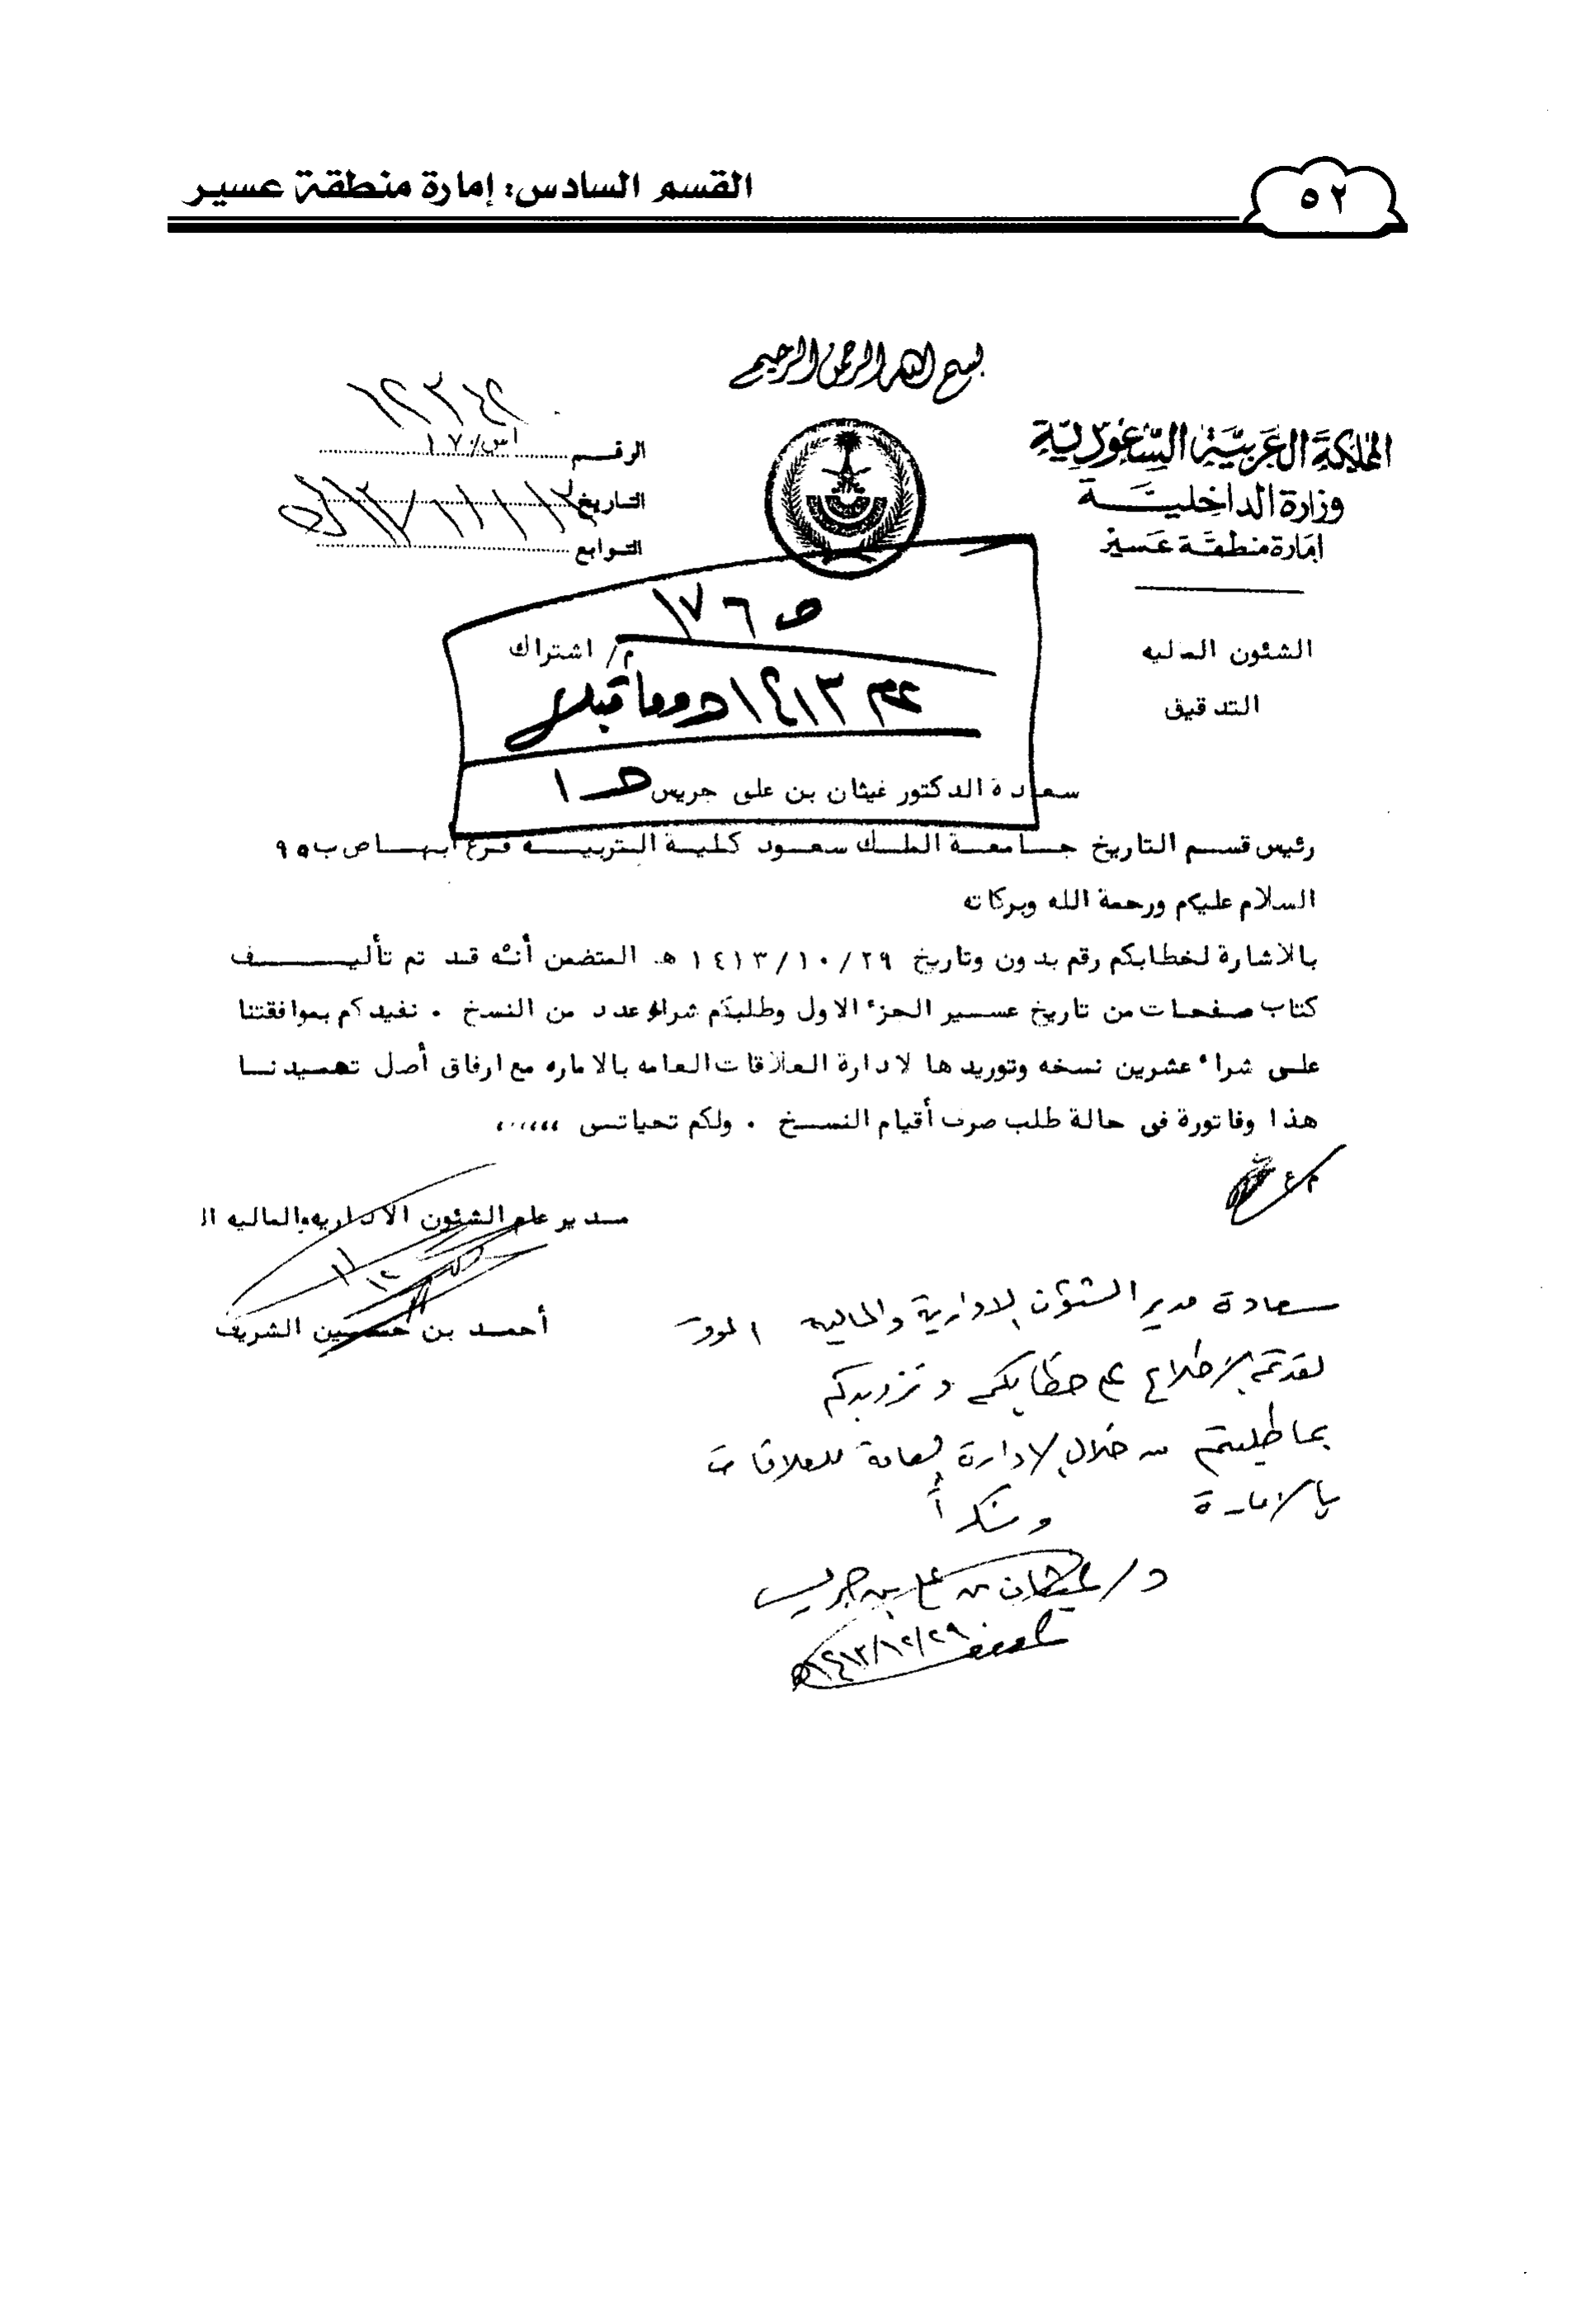 القسم السادس: إمارة منطقة عسير
٥٢
بسم الله الرحمن الرحيم
المملكة العربية السعودية
وزارة الداخلية
إمارة منطقة عسير
الشئون الماليه
التدقيق
١٢٣٤٢
الرقم
التاريخ
التوابع
ص ١٧٦
م/ اشتراك
١٤١٣هـ وما قبل
سعادة الدكتور غيثان بن على جريس
هـ ١
رئيس قسم التاريخ جامعة الملك سعود كلية التربيه فرع أبها ص ب ٩٥
السلام عليكم ورحمة الله وبركاته
بالاشارة لخطابكم رقم بدون وتاريخ ١٤١٣/١٠/٢٩ هـ المتضمن أنه قد تم تأليف
كتاب صفحات من تاريخ عسير الجزء الاول وطلبكم شراء عدد من النسخ . نفيدكم بموافقتنا
على شراء عشرين نسخه وتوريدها لادارة العلاقات العامه بالاماره مع ارفاق أصل تعميدنا
هذا وفاتورة فى حالة طلب صرف أقيام النسخ . ولكم تحياتى ،،،،،،
مدير عام الشئون الاداريه والماليه
أحمد بن حسين الشريف
سعادة مدير الشئون الادارية والمالية الموقر
لقد تم الإطلاع على خطابكم وتزويدكم
بما طلبتم من خلال الإدارة العامة للعلاقات
بالإمارة
وشكراً
د/ غيثان بن علي بن جريس
١٤١٣/١٢/٢٩هـ